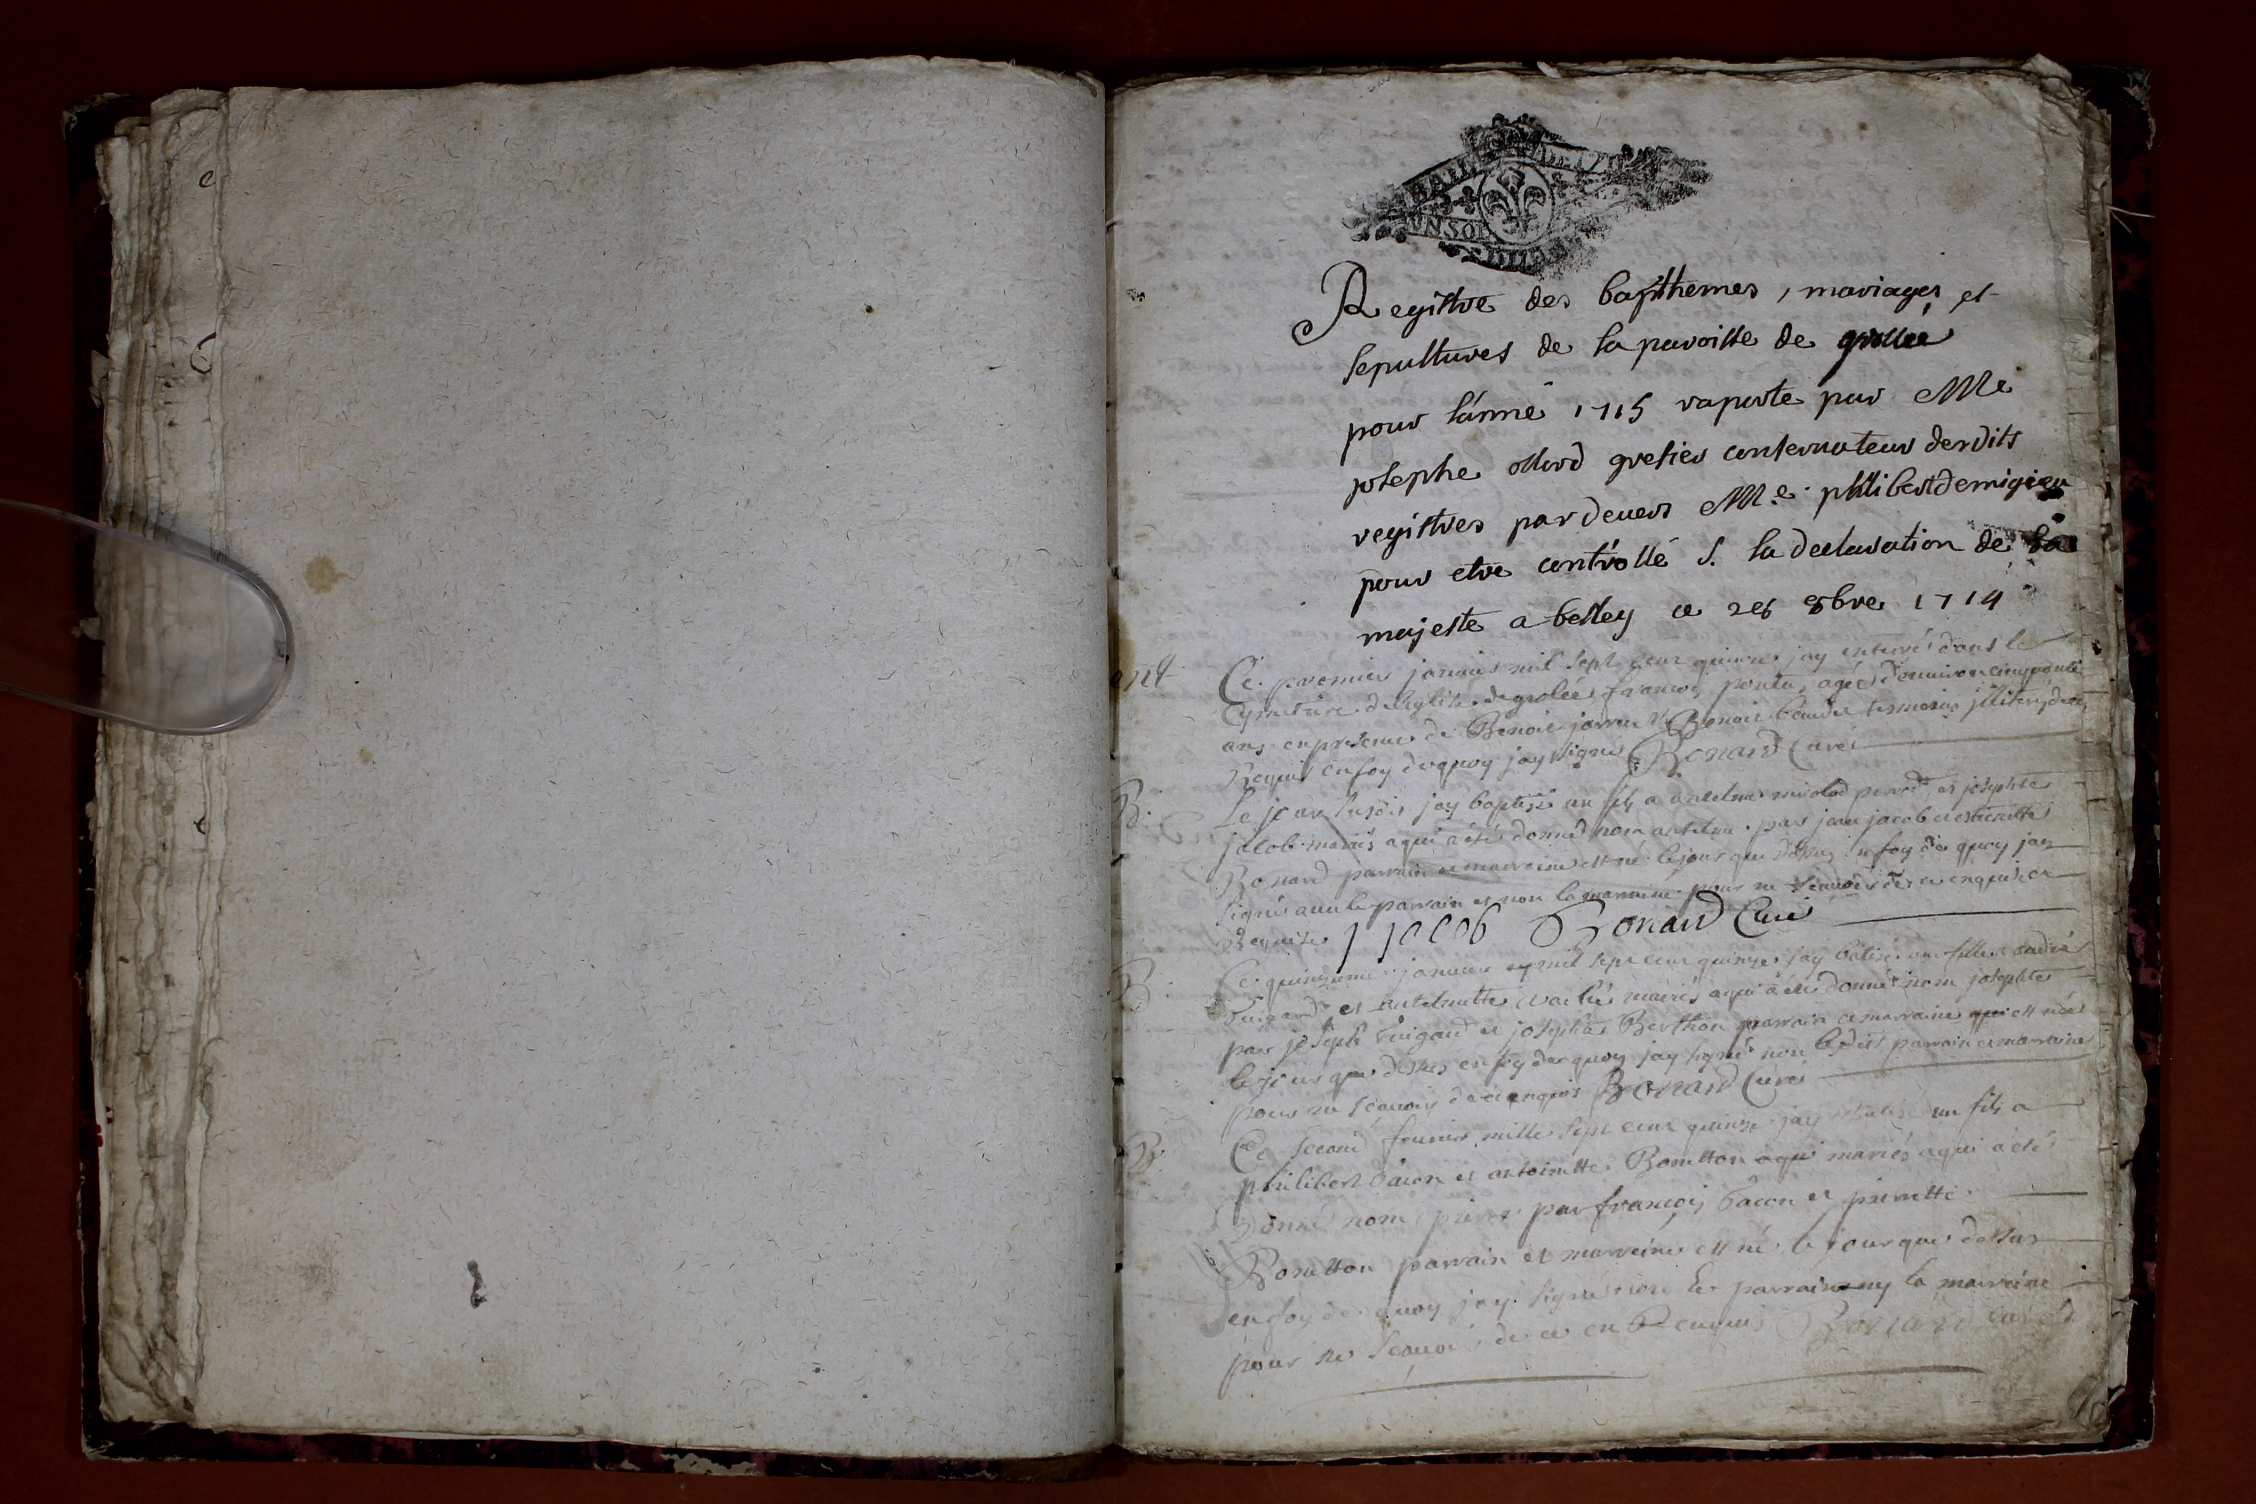 UN SOL
Registre des bapthemes, mariages et
sepultures de la paroisse de grollée
pour l'année 1715 raporte par Me
josephe ollard grefier conservateur desdits
registres pardevers Me. philibert demigieu
pour etre controllé s. la declaration de sa
majeste a belley ce 28 8bre 1714
Ce premier janvier mil sept cent quinze jay enterré dans le
cymetiere de leglise de grolée francois agée denviron
ans en presence de Benoit et Benoit tesmoins
Requis en foy de quoy jay signé Bonard Curé
B.
Le jour susdit jay baptisé un fils a anthelme et josephte
jacob mariés a qui a été donné nom anthelme par jean jacob et
Bonard parrain et marraine est né le jour que dessus en foy de quoy jay
signé avec le parrain et non la marraine pour ne scavoir de ce enquise et
Requise J jacob Bonard Curé
B.
Ce quinzieme janvier mil sept cent quinze jay batisé une fille a
et anthelmette mariés a qui a été donné nom josephte
par joseph et josephte Berthon parrain et marraine qui est née
le jour que dessus en foy de quoy jay signé non parrain et marraine
pour ne scavoir de ce enquis Bonard Curé
B.
Ce second fevrier mille sept cent quinze jay un fils a
philibert bacon et antoinette Bonetton mariés a qui a été
donné nom par francois bacon et pierrette
Bonetton parrain et marraine est né le jour que dessus
en foy de quoy jay signé non le parrain ny la marraine
pour ne scavoir de ce en Requis Bonard Curé